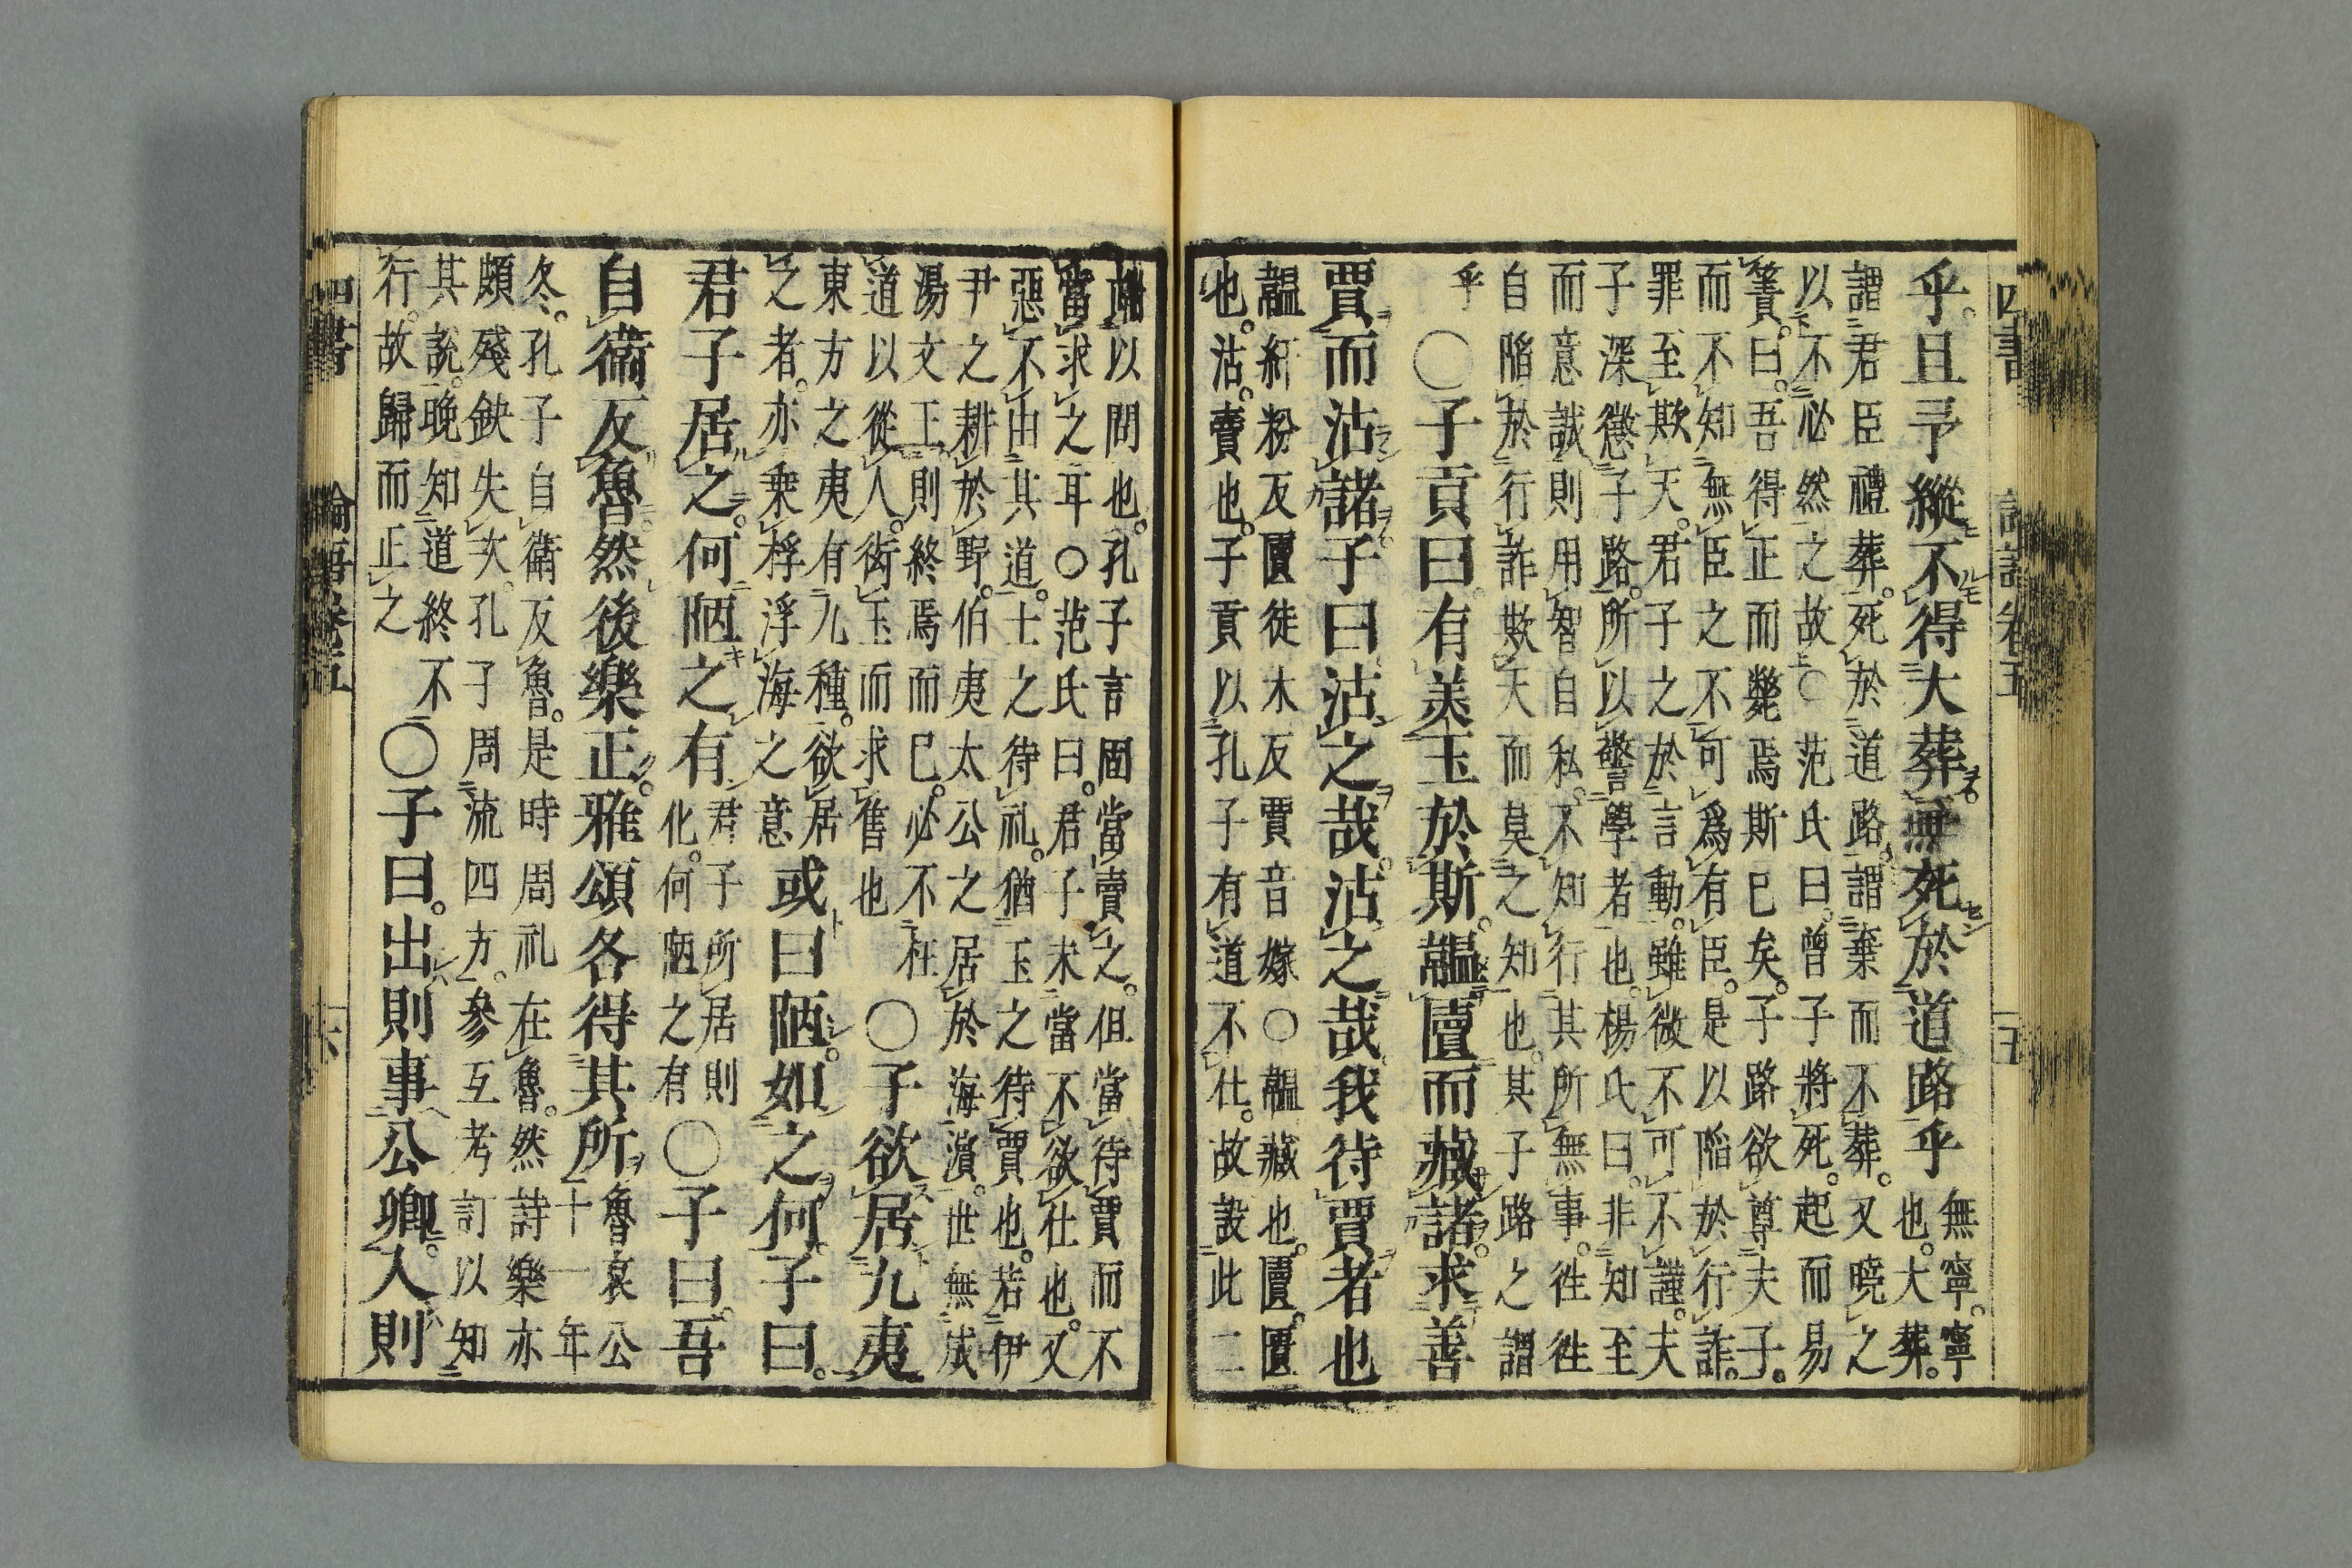 乎且予縱不得大葬無死於道路乎
無寧寧
也大葬
謂君臣禮葬死於道路謂棄而不葬又曉之
以不必然之故○范氏曰曾子將死起而易
簀曰吾得正而斃焉斯已矣子路欲尊夫子
而不知無臣之不可爲有臣是以陷於行詐
罪至欺天君子之於言動雖微不可不謹夫
子深懲子路所以警學者也楊氏曰非知至
而意誠則用智自私不知行其所無事徃徃
自陷於行詐欺天而莫之知也其子路之謂
乎
○子貢曰有美玉於斯韞匵而藏諸求善
賈而沽諸子曰沽之哉沽之哉我待賈者也
韞紆粉反匵徒木反賈音嫁○韞藏也匵匱
也沽賣也子貢以孔子有道不仕故設此二
端以問也孔子言固當賣之但當待賈而不
當求之耳○范氏曰君子未嘗不欲仕也又
惡不由其道士之待礼猶玉之待賈也若伊
尹之耕於野伯夷太公之居於海濵世無成
湯文王則終焉而已必不枉
道以從人衒玉而求售也
○子欲居九夷
東方之夷有九種欲居
之者亦乗桴浮海之意
或曰陋如之何子曰
君子居之何陋之有
君子所居則
化何陋之有
○子曰吾
自衞反魯然後樂正雅頌各得其所
魯哀公
十一年
冬孔子自衞反魯是時周礼在魯然詩樂亦
頗殘缺失次孔子周流四方參互考訂以知
其說晚知道終不
行故歸而正之
○子曰出則事公卿入則
四書
論語卷五
十六